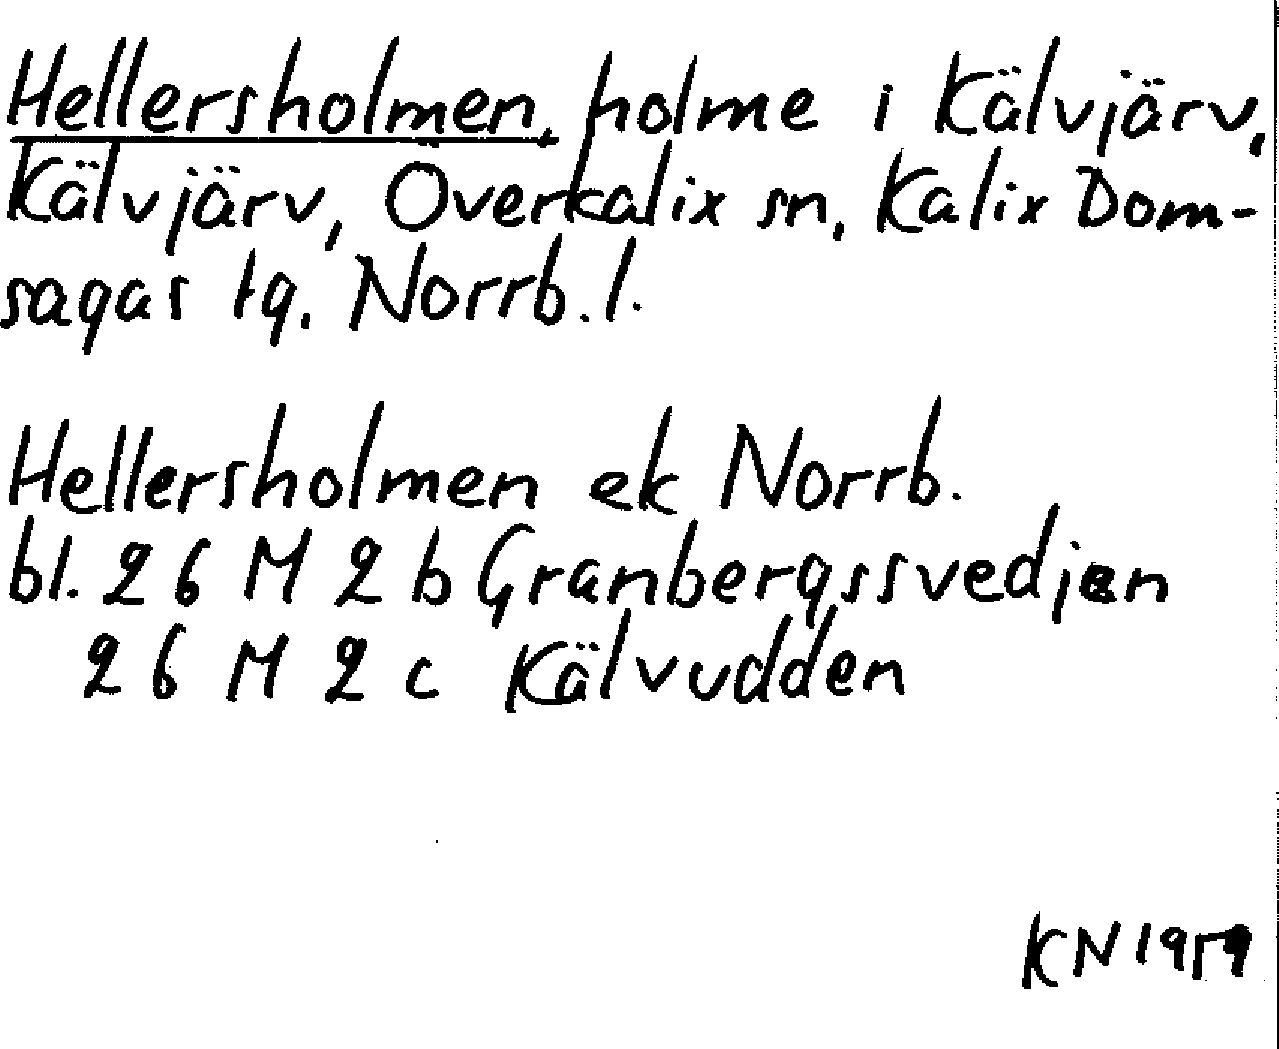 Hellersholmen, holme i Kälvjärv,
Kälvjärv, Överkalix sn, Kalix Dom-
sagas tg. Norrb. l.
Hellersholmen ek Norrb.
bl. 26 M 2 b Granbergssvedjan
26 M 2 c Kälvudden
KN 1959